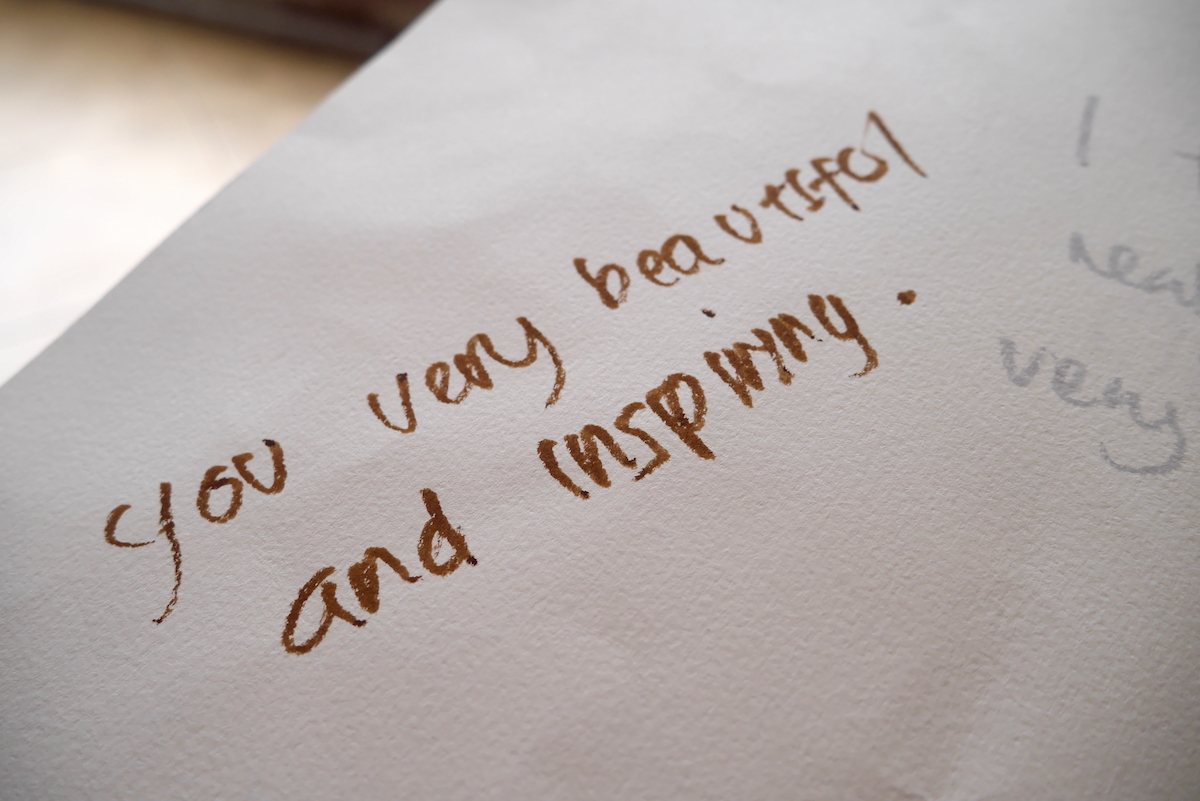 you very beautiful
and inspiring.
I
very